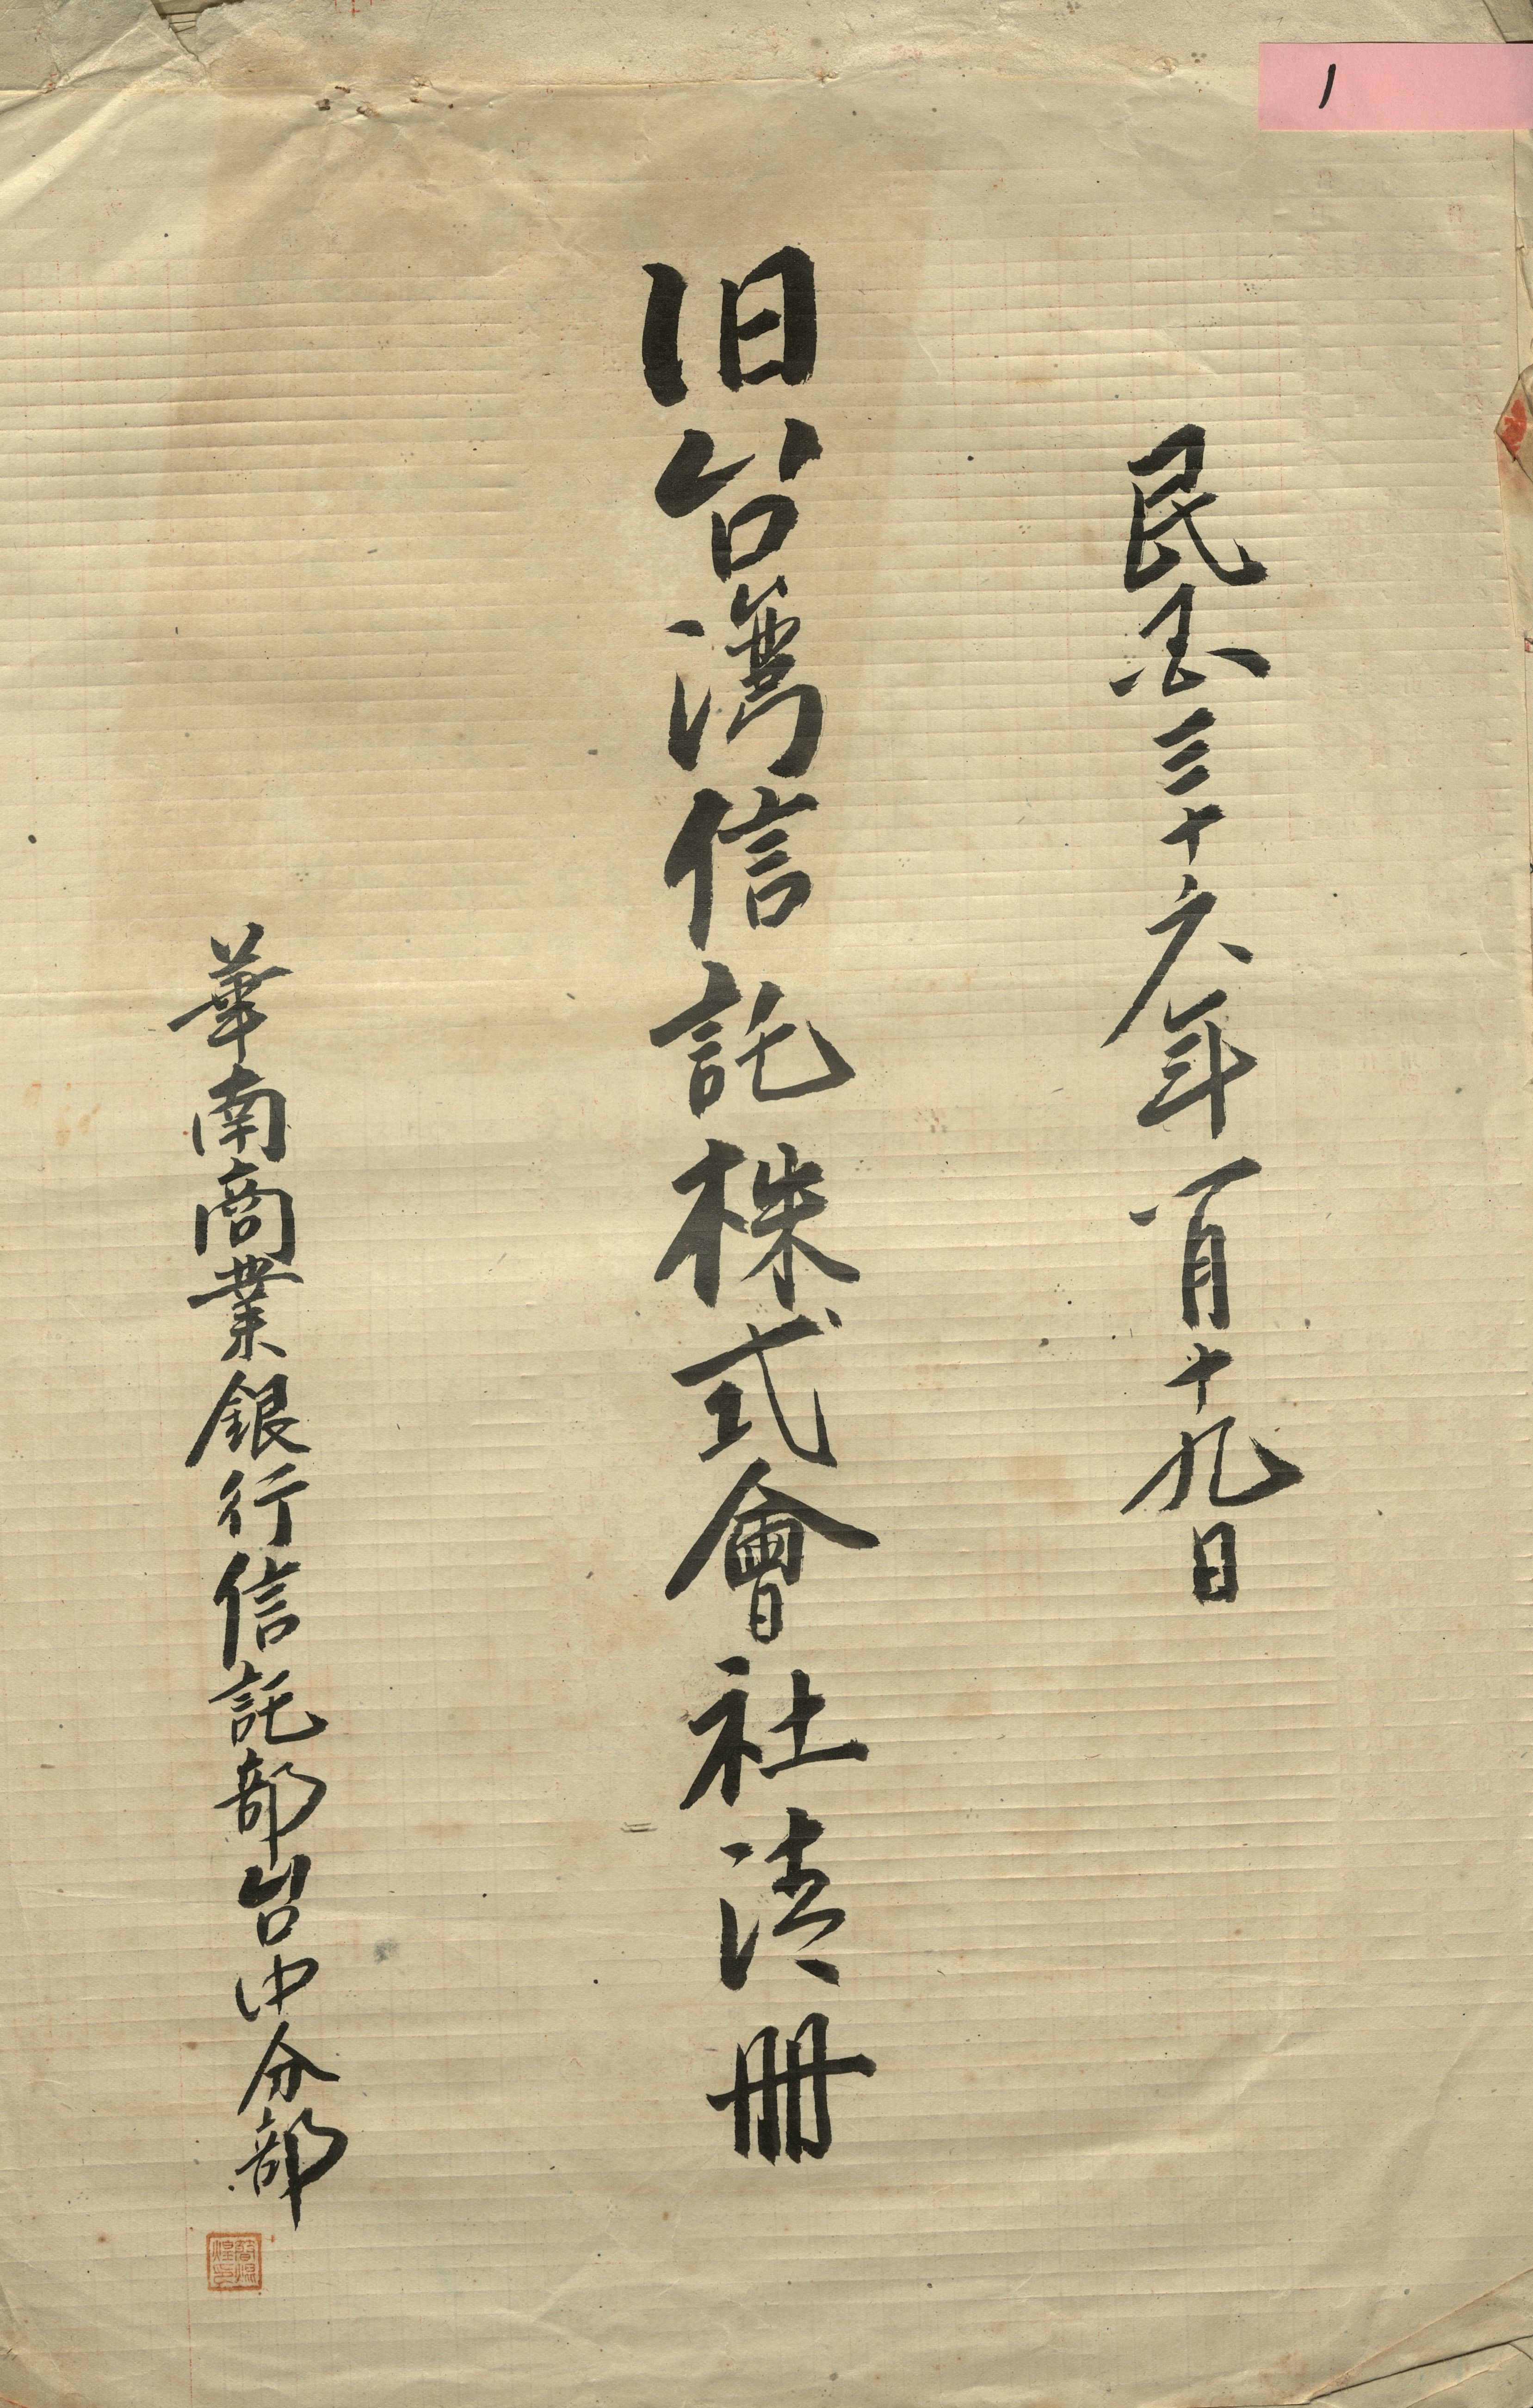 1
民国三十六年一月十九日
旧台湾信託株式會社清册
華南商業銀行信託部台中分部